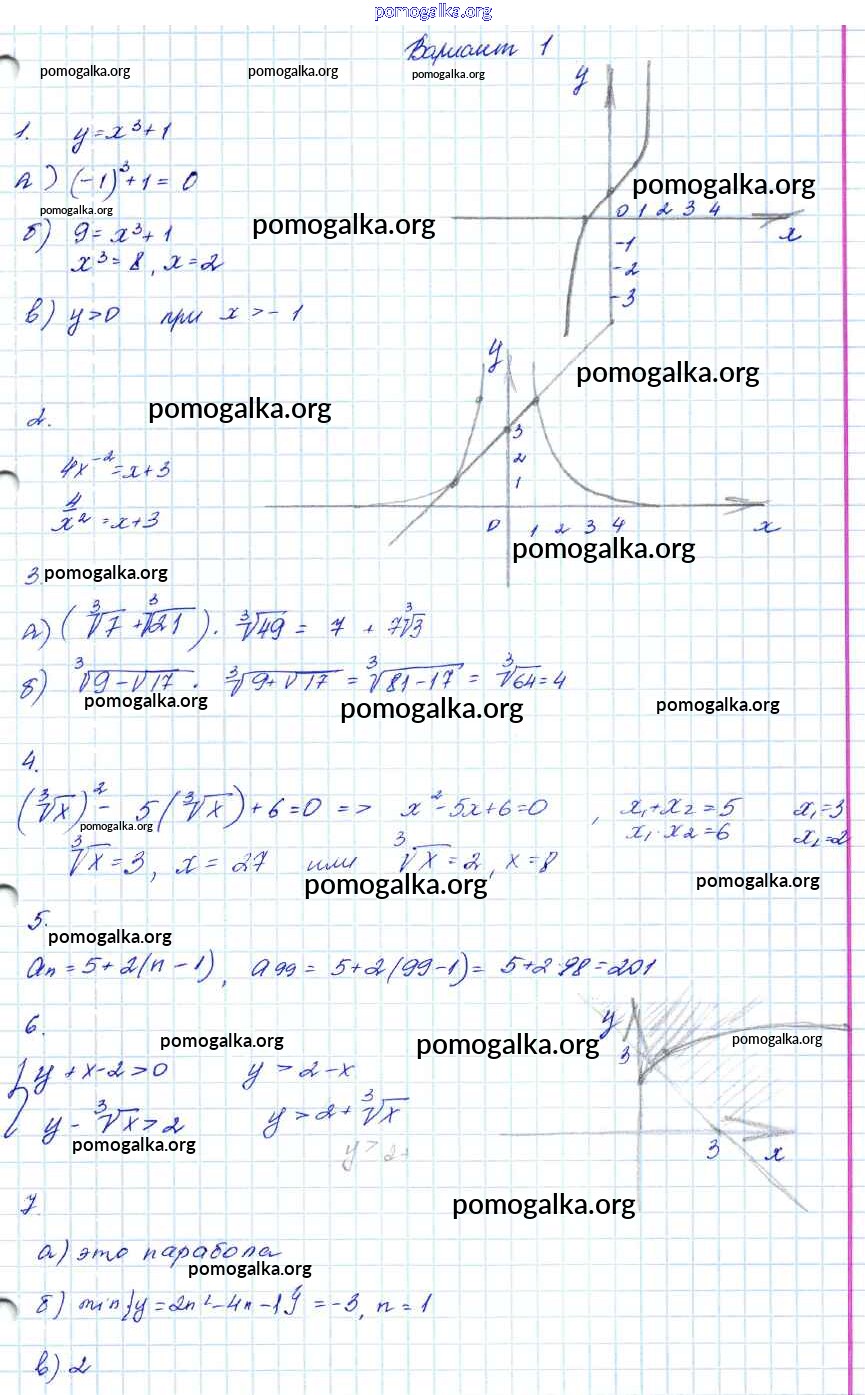 pomogalka.org
Вариант 1
pomogalka.org pomogalka.org pomogalka.org
y
1. y = x³ + 1
а) (-1)³ + 1 = 0
pomogalka.org
pomogalka.org
0 1 2 3 4
x
pomogalka.org
б) 9 = x³ + 1
x³ = 8, x = 2
-1
-2
-3
в) y > 0 при x > -1
y
pomogalka.org
2.
pomogalka.org
3
2
1
4x⁻² = x + 3
4/x² = x + 3
0 1 2 3 4 x
pomogalka.org
3. pomogalka.org
а) (∛7 + ∛21) · ∛49 = 7 + 7∛3
б) ∛(9 - √17) · ∛(9 + √17) = ∛(81 - 17) = ∛64 = 4
pomogalka.org pomogalka.org pomogalka.org
4.
(∛x)² - 5(∛x) + 6 = 0 => x² - 5x + 6 = 0, x₁ + x₂ = 5 x₁ = 3
x₁ · x₂ = 6 x₂ = 2
pomogalka.org
∛x = 3, x = 27 или ∛x = 2, x = 8
pomogalka.org pomogalka.org
5.
pomogalka.org
aₙ = 5 + 2(n - 1), a₉₉ = 5 + 2(99 - 1) = 5 + 2·98 = 201
6.
y
3
pomogalka.org pomogalka.org pomogalka.org
{ y + x - 2 > 0 y > 2 - x
y - ∛x > 2 y > 2 + ∛x
pomogalka.org
y > 2+
3 x
7.
pomogalka.org
а) это парабола
pomogalka.org
б) min{y = 2n² - 4n - 1} = -3, n = 1
в) 2